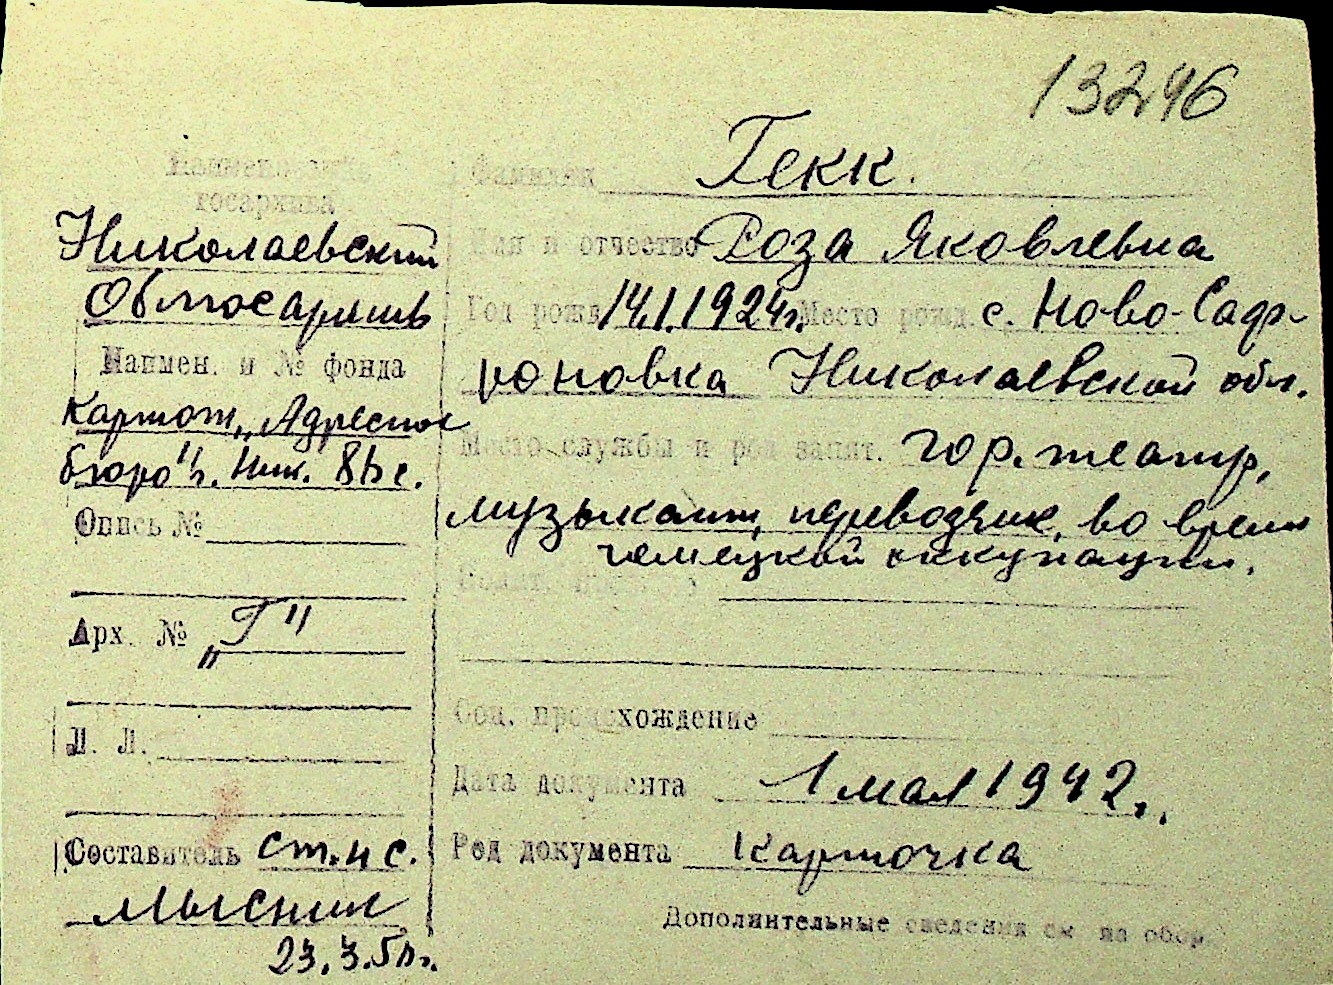 13246
Наименование
госархива
Николаевский
Облгосархив
Наимен. и № фонда
Картот. „Адресное
бюро" г. Ник.
Опись №
Арх. № „Г"
Л. Л.
Составитель ст. н с.
23.3.50г.
Фамилия Гекк.
Имя и отчество Роза Яковлевна
Год рожд 14.1.1924г. Место рожд. с. Ново-Саф-
роновка Николаевской обл.
Место службы и род занят. гор. театр,
музыкант, переводчик, во время
немецкой оккупации.
Соц. происхождение
Дата документа 1 мая 1942г.
Род документа Карточка
Дополнительные сведения см на обор.